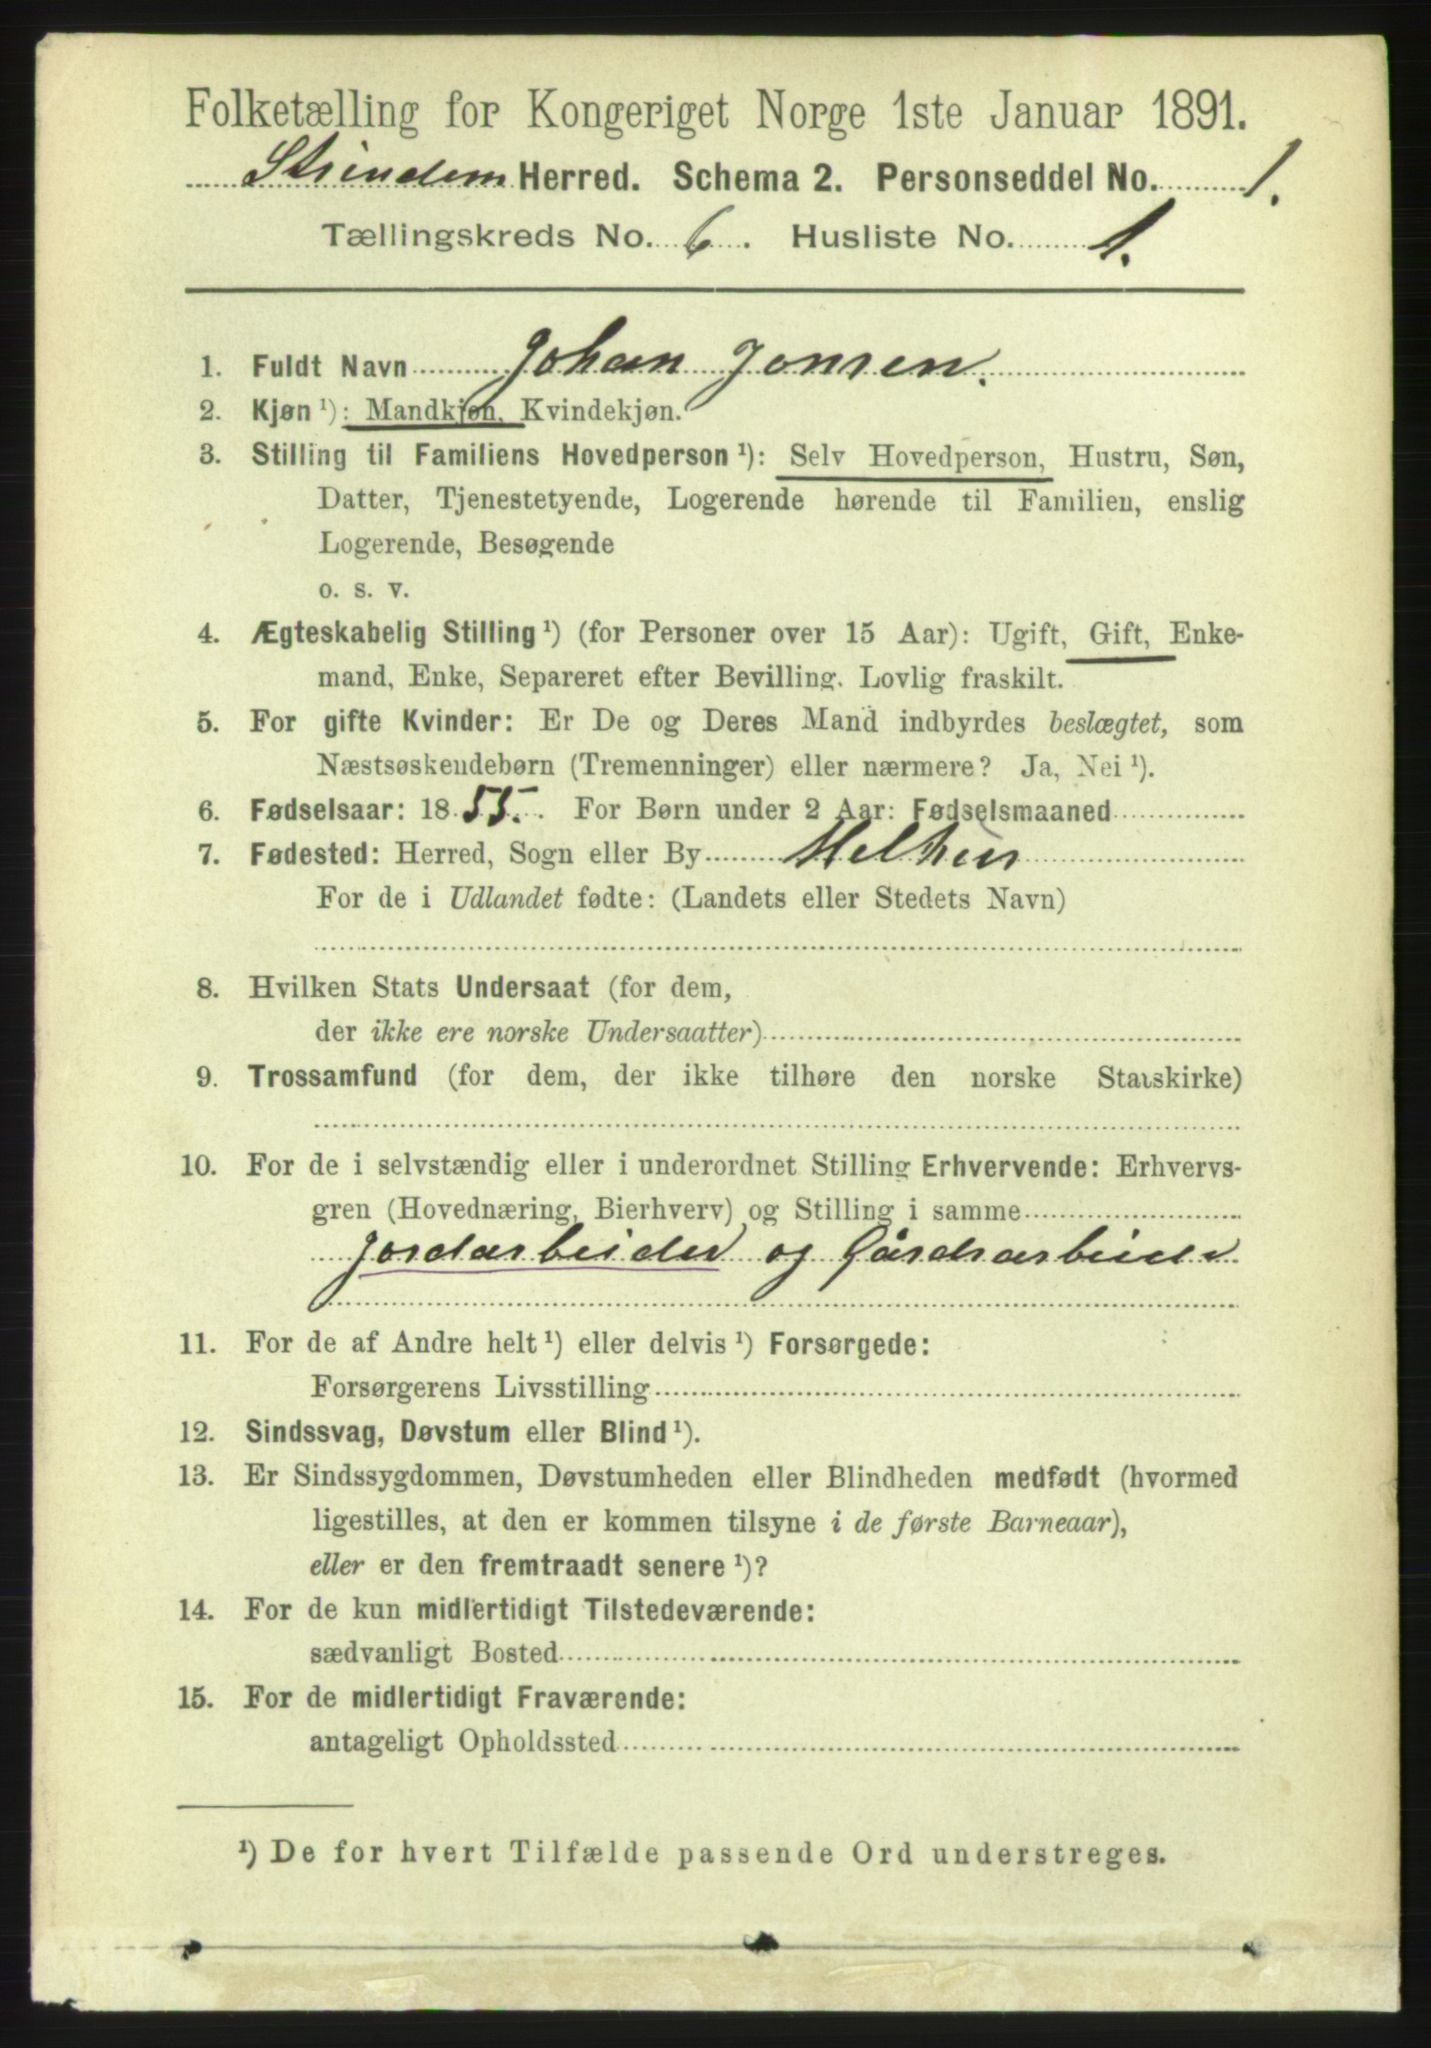 Folketælling for Kongeriget Norge 1ste Januar 1891.
Strindem Herred. Schema 2. Personseddel No. 1.
Tællingskreds No. 6. Husliste No. 1.
1. Fuldt Navn Johan Jonsen.
2. Kjøn ¹): Mandkjøn, Kvindekjøn.
3. Stilling til Familiens Hovedperson ¹): Selv Hovedperson, Hustru, Søn,
Datter, Tjenestetyende, Logerende hørende til Familien, enslig
Logerende, Besøgende
o. s. v.
4. Ægteskabelig Stilling ¹) (for Personer over 15 Aar): Ugift, Gift, Enke-
mand, Enke, Separeret efter Bevilling. Lovlig fraskilt.
5. For gifte Kvinder: Er De og Deres Mand indbyrdes beslægtet, som
Næstsøskendebørn (Tremenninger) eller nærmere? Ja, Nei ¹).
6. Fødselsaar: 1855. For Børn under 2 Aar: Fødselsmaaned
7. Fødested: Herred, Sogn eller By Melhus
For de i Udlandet fødte: (Landets eller Stedets Navn)
8. Hvilken Stats Undersaat (for dem,
der ikke ere norske Undersaatter)
9. Trossamfund (for dem, der ikke tilhøre den norske Statskirke)
10. For de i selvstændig eller i underordnet Stilling Erhvervende: Erhvervs-
gren (Hovednæring, Bierhverv) og Stilling i samme
Jordarbeider og Gårdsarbeider
11. For de af Andre helt ¹) eller delvis ¹) Forsørgede:
Forsørgerens Livsstilling
12. Sindssvag, Døvstum eller Blind ¹).
13. Er Sindssygdommen, Døvstumheden eller Blindheden medfødt (hvormed
ligestilles, at den er kommen tilsyne i de første Barneaar),
eller er den fremtraadt senere ¹)?
14. For de kun midlertidigt Tilstedeværende:
sædvanligt Bosted
15. For de midlertidigt Fraværende:
antageligt Opholdssted
¹) De for hvert Tilfælde passende Ord understreges.